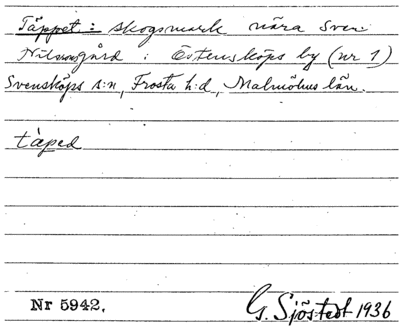 Täppet: skogsmark nära Sven
Nilssongård i Östensköps by (nr 1)
Svensköps s:n, Frosta h:d, Malmöhus län.
tàped
Nr 5942. G. Sjöstedt 1936